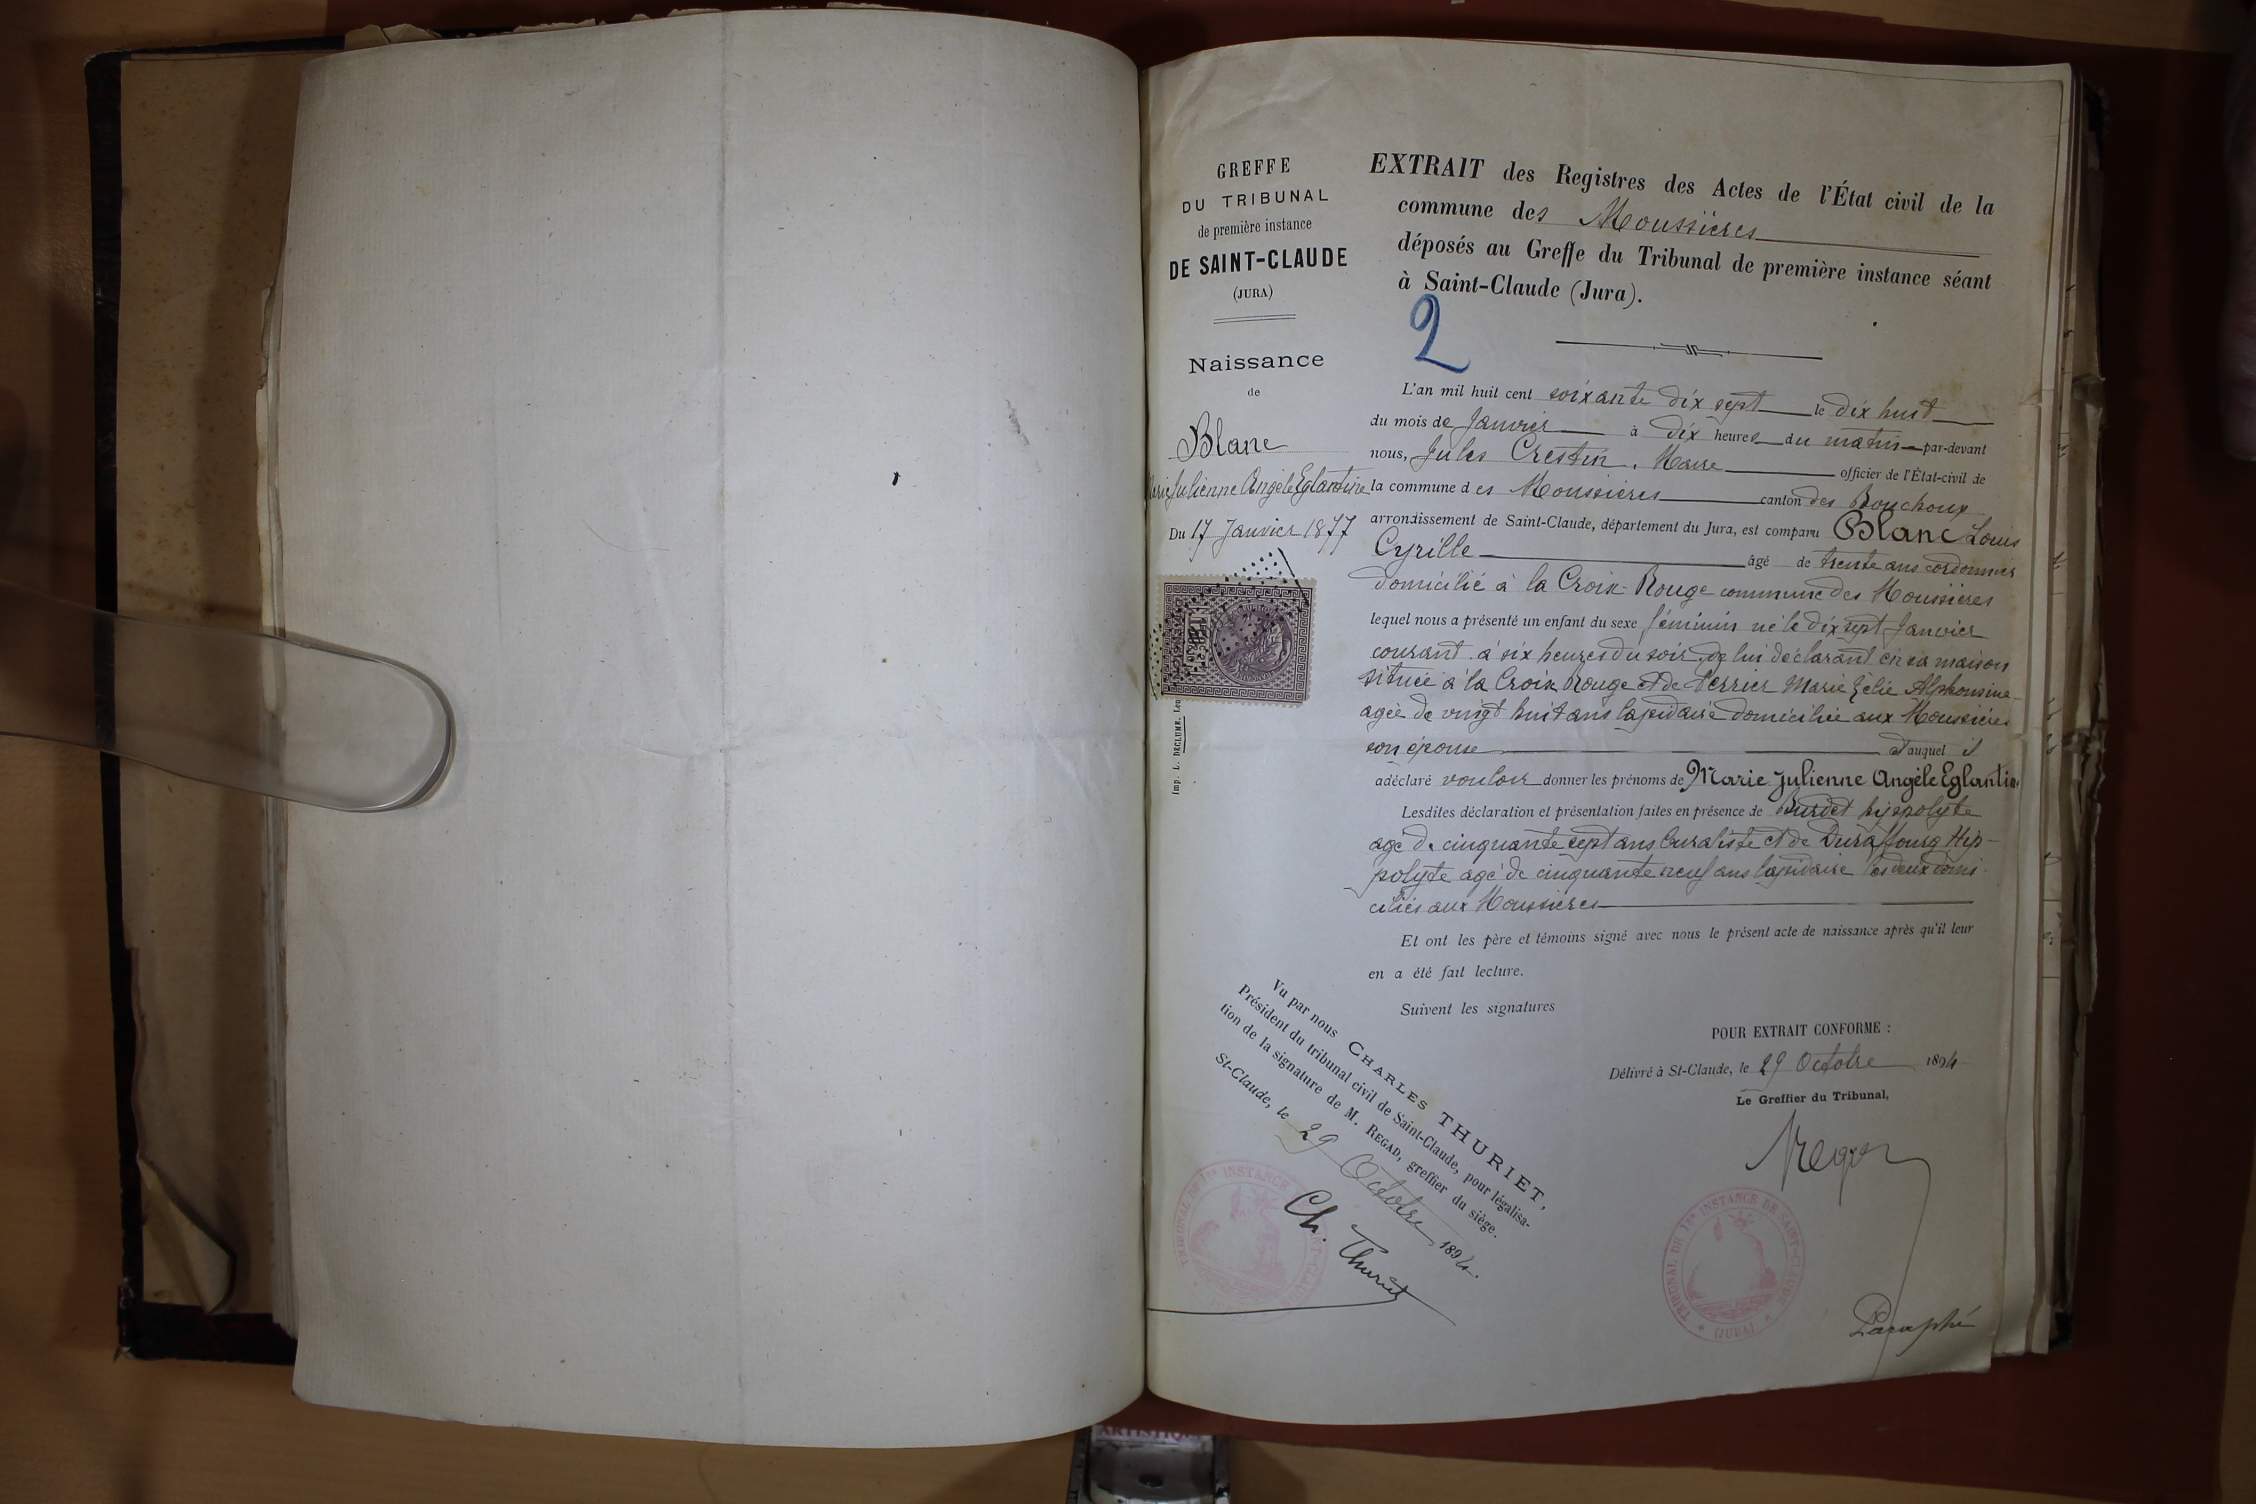 GREFFE
DU TRIBUNAL
de première instance
DE SAINT-CLAUDE
(JURA)
Naissance
de
Blanc
Marie Julienne Angèle Eglantine
Du 17 Janvier 1877
Imp. L. DECLUME.
EXTRAIT des Registres des Actes de l'État civil de la
commune des Moussières
déposés au Greffe du Tribunal de première instance séant
à Saint-Claude (Jura).
2
L'an mil huit cent soixante dix sept le dix huit
du mois de Janvier à dix heures du matin par-devant
nous, Jules Crestin, Maire officier de l'État-civil de
la commune des Moussières canton des Bouchoux
arrondissement de Saint-Claude, département du Jura, est comparu Blanc Louis
Cyrille âgé de trente ans cordonnier
domicilié à la Croix-Rouge commune des Moussières
lequel nous a présenté un enfant du sexe féminin né le dix sept Janvier
courant à six heures du soir, de lui déclarant en sa maison
située à la Croix Rouge et de Perrier Marie Zélie Alphonsine
agée de vingt huit ans lapidaire domiciliée aux Moussières
son épouse auquel il
a déclaré vouloir donner les prénoms de Marie Julienne Angèle Eglantine
Lesdites déclaration et présentation faites en présence de Burdet hippolyte
agé de cinquante sept ans buraliste et de Duraffourg Hip-
polyte agé de cinquante neuf ans lapidaire les deux domi-
ciliés aux Moussières
Et ont les père et témoins signé avec nous le présent acte de naissance après qu'il leur
en a été fait lecture.
Suivent les signatures
POUR EXTRAIT CONFORME :
Délivré à St-Claude, le 29 Octobre 1894
Le Greffier du Tribunal,
Regad
Vu par nous CHARLES THURIET,
Président du tribunal civil de Saint-Claude, pour légalisa-
tion de la signature de M. REGAD, greffier du siège.
St-Claude, le 29 Octobre 1894.
Ch. Thuriet
TRIBUNAL DE 1re INSTANCE DE SAINT-CLAUDE
(JURA)
Paraphé